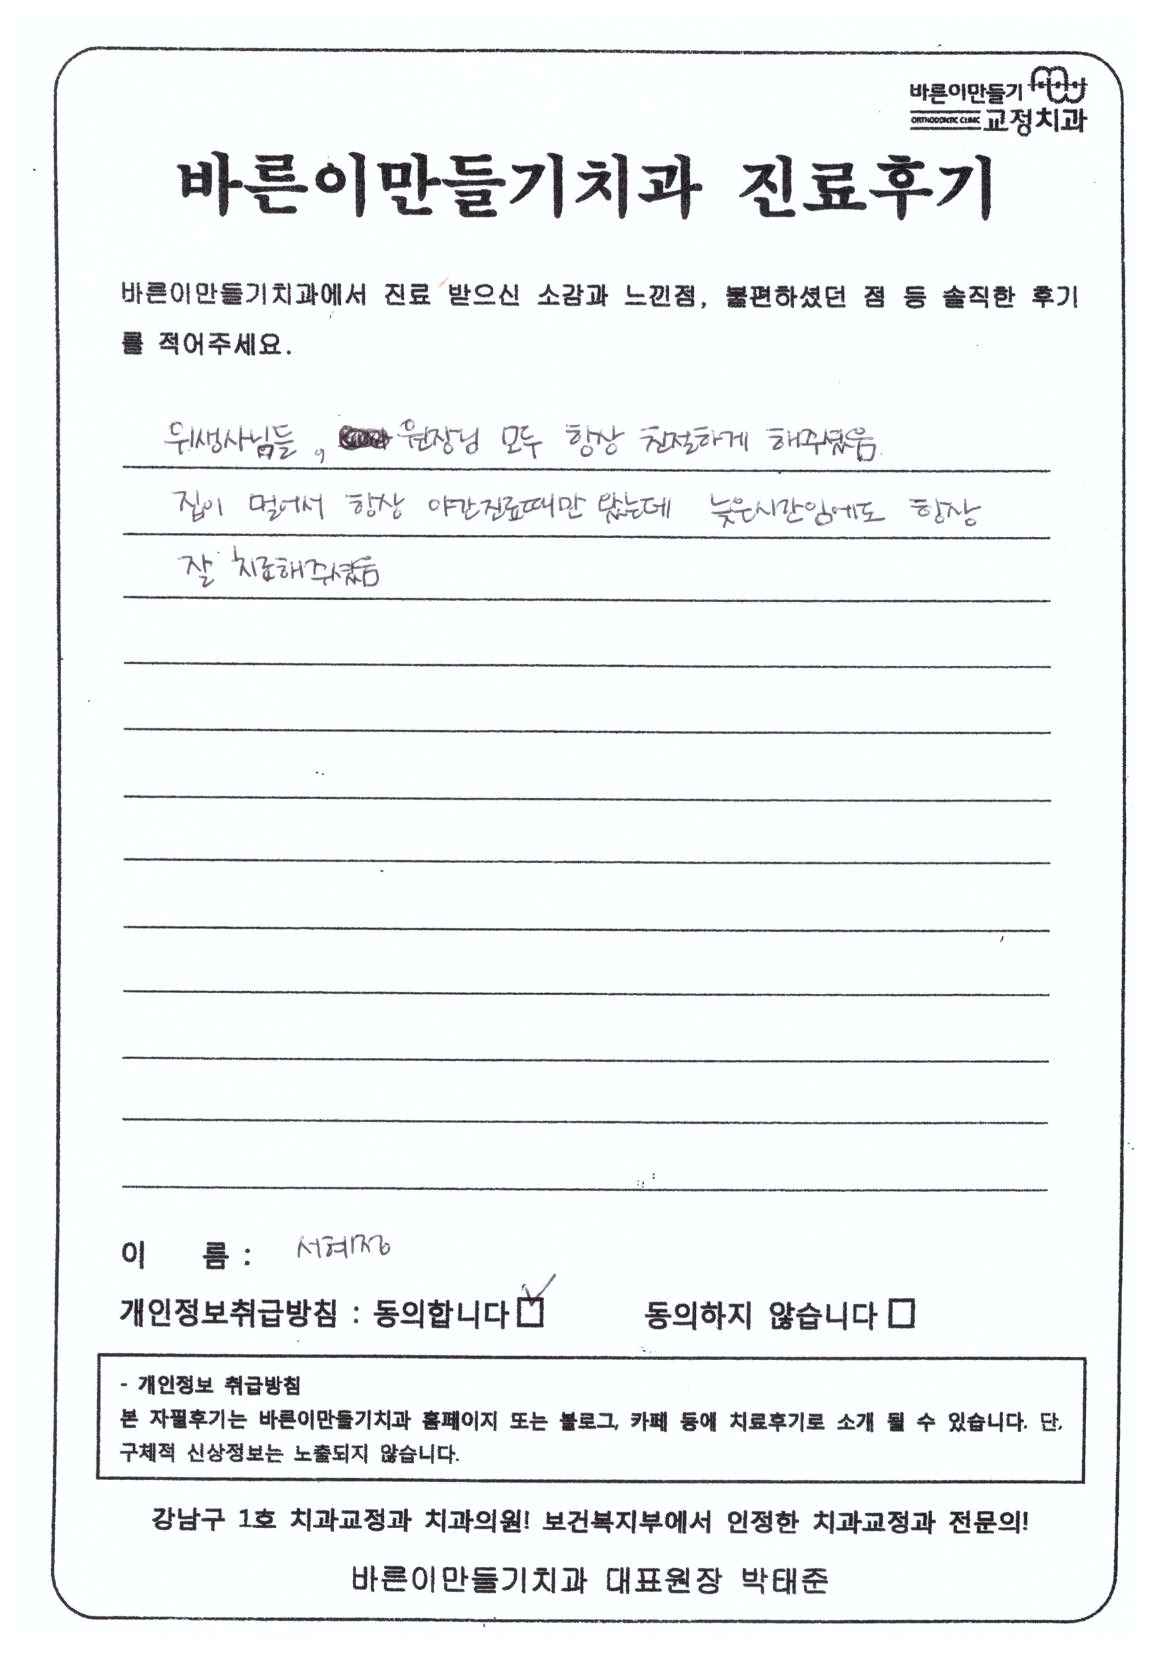 바른이만들기
ORTHODONTIC CLINIC 교정치과
바른이만들기치과 진료후기
바른이만들기치과에서 진료 받으신 소감과 느낀점, 불편하셨던 점 등 솔직한 후기
를 적어주세요.
위생사님들, 원장님 모두 항상 친절하게 해주셨음.
집이 멀어서 항상 야간진료때만 왔는데 늦은시간임에도 항상
잘 치료해주셨음
이 름 : 서혜정
개인정보취급방침 : 동의합니다 ☑ 동의하지 않습니다 □
- 개인정보 취급방침
본 자필후기는 바른이만들기치과 홈페이지 또는 블로그, 카페 등에 치료후기로 소개 될 수 있습니다. 단,
구체적 신상정보는 노출되지 않습니다.
강남구 1호 치과교정과 치과의원! 보건복지부에서 인정한 치과교정과 전문의!
바른이만들기치과 대표원장 박태준